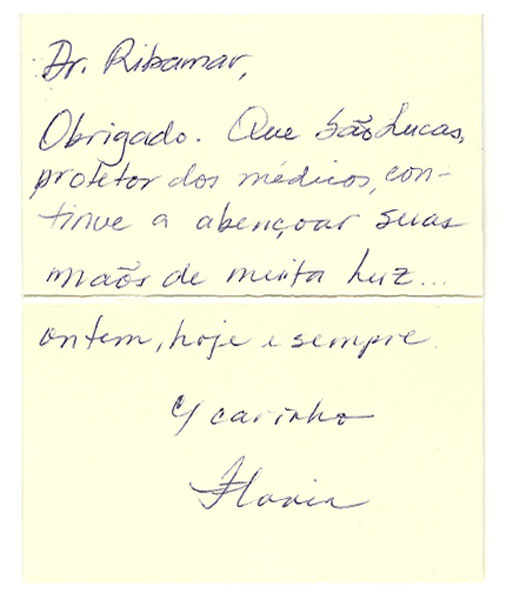 Dr. Ribamar,
Obrigado. Que São Lucas,
protetor dos médicos, con-
tinue a abençoar suas
mãos de muita luz...
ontem, hoje e sempre.
c/ carinho
Flavia